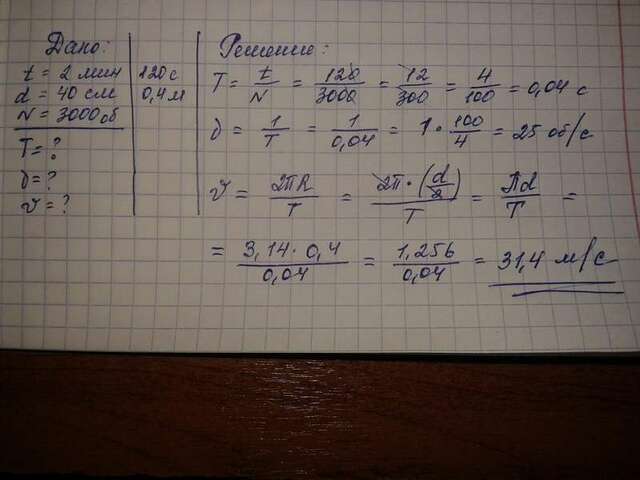 Дано:
t = 2 мин | 120 с
d = 40 см | 0,4 м
N = 3000 об
T = ?
ν = ?
v = ?
Решение:
T = t/N = 120/3000 = 12/300 = 4/100 = 0,04 с
ν = 1/T = 1/0,04 = 1 · 100/4 = 25 об/с
v = 2πR/T = 2π · (d/2)/T = πd/T =
= 3,14 · 0,4/0,04 = 1,256/0,04 = 31,4 м/с